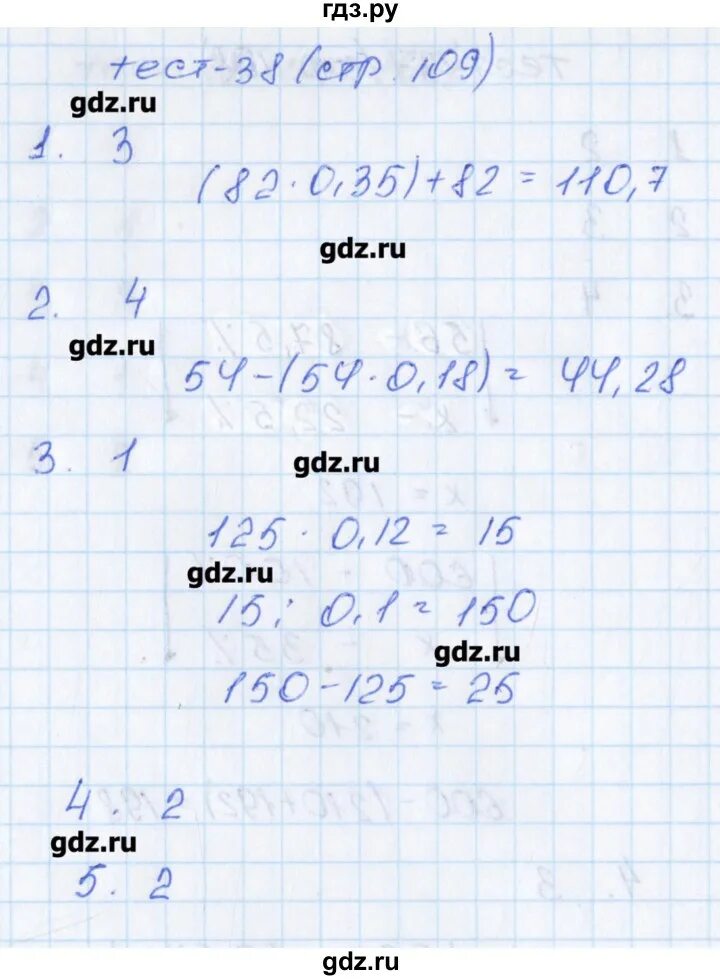 гдз.ру
тест-38 (стр. 109)
gdz.ru
1. 3
(82 · 0,35) + 82 = 110,7
gdz.ru
2. 4
gdz.ru
54 - (54 · 0,18) = 44,28
3. 1
gdz.ru
125 · 0,12 = 15
gdz.ru
15 : 0,1 = 150
gdz.ru
150 - 125 = 25
4. 2
gdz.ru
5. 2
gdz.ru